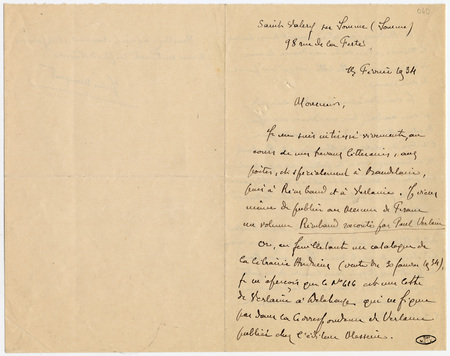 Saint-Valery sur Somme (Somme)
98 rue de la Ferté
15 Février 1934
Monsieur,
Je me suis intéressé vivement, au
cours de mes travaux littéraires, aux
poètes, et spécialement à Baudelaire,
puis à Rimbaud et à Verlaine. Je viens
même de publier au Mercure de France
un volume Rimbaud raconté par Paul Verlaine
Or, en feuilletant un catalogue de
la librairie Andrieux (vente du 30 janvier 1934),
je m'aperçois que le No 616 est une lettre
de Verlaine à Delahaye qui ne figure
pas dans la Correspondance de Verlaine
publiée chez l'éditeur Messein.